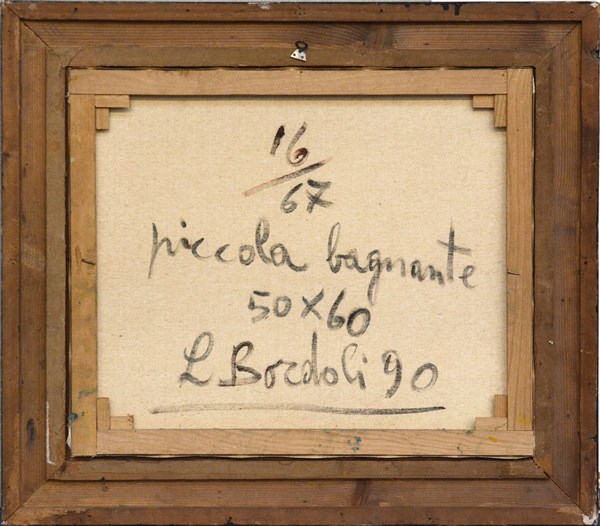 16
67
piccola bagnante
50x60
L Bordoli 90